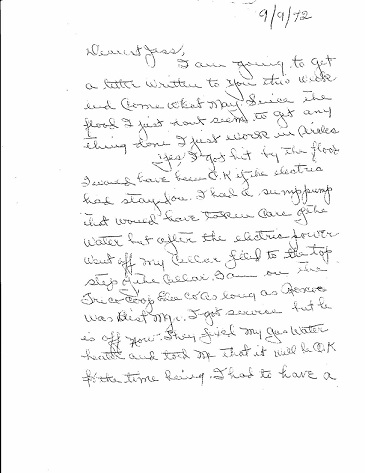 9/9/72
Dearest Jess,
I am going to get
a letter written to you this week
end come what may. Since the
flood I just dont seem to get any
thing done I just work in circles
Yes, I got hit by the flood
I would have been O.K if the electric
had stay on. I had a sump pump
that would have taken care of the
water but after the electric power
went off my cellar filed to the top
step of the cellar. I am on the
Tri-Co Coop Elec Co as long as
was Dist Mgr. I got service but he
is off now. They fixed my gas water
heater and told me that it will be O.K
for the time being. I had to have a